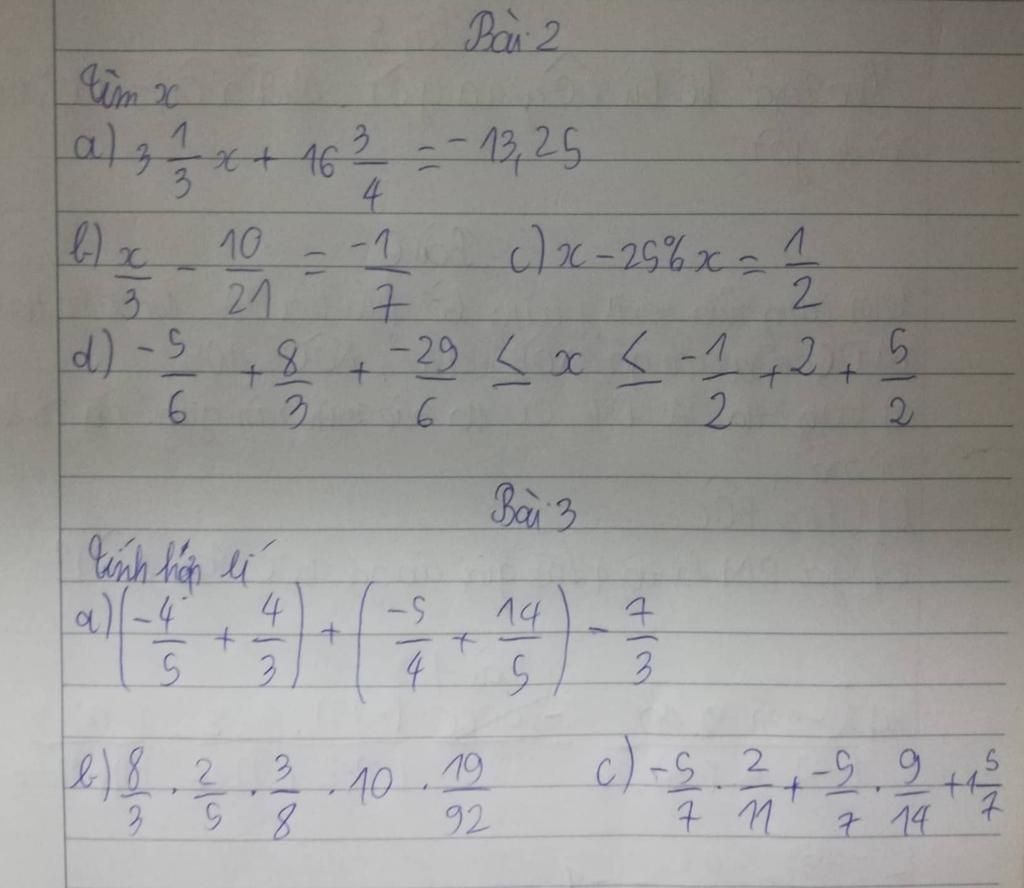 Bài 2
Tìm x
a) 3 1/3 x + 16 3/4 = -13,25
b) x/3 - 10/21 = -1/7 c) x - 25% x = 1/2
d) -5/6 + 8/3 + -29/6 ≤ x ≤ -1/2 + 2 + 5/2
Bài 3
Tính hợp lí
a) (-4/5 + 4/3) + (-5/4 + 14/5) - 7/3
b) 8/3 . 2/5 . 3/8 . 10 . 19/92 c) -5/7 . 2/11 + -5/7 . 9/14 + 1 5/7